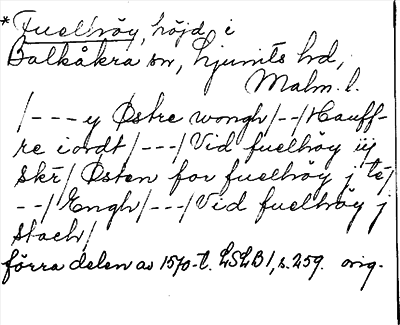 *Fuelhöy, höjd i
Balkåkra sn, Ljunits hd,
Malm. l.
/---y Østre wongh/--/Hauff-
re iordt/---/Vid fuelhöy iij
Skr/Østen for fuelhöy j te/
--/Engh/---/Vid fuelhöy j
stach/
förra delen av 1570-t. LSLB1, s. 259. orig.